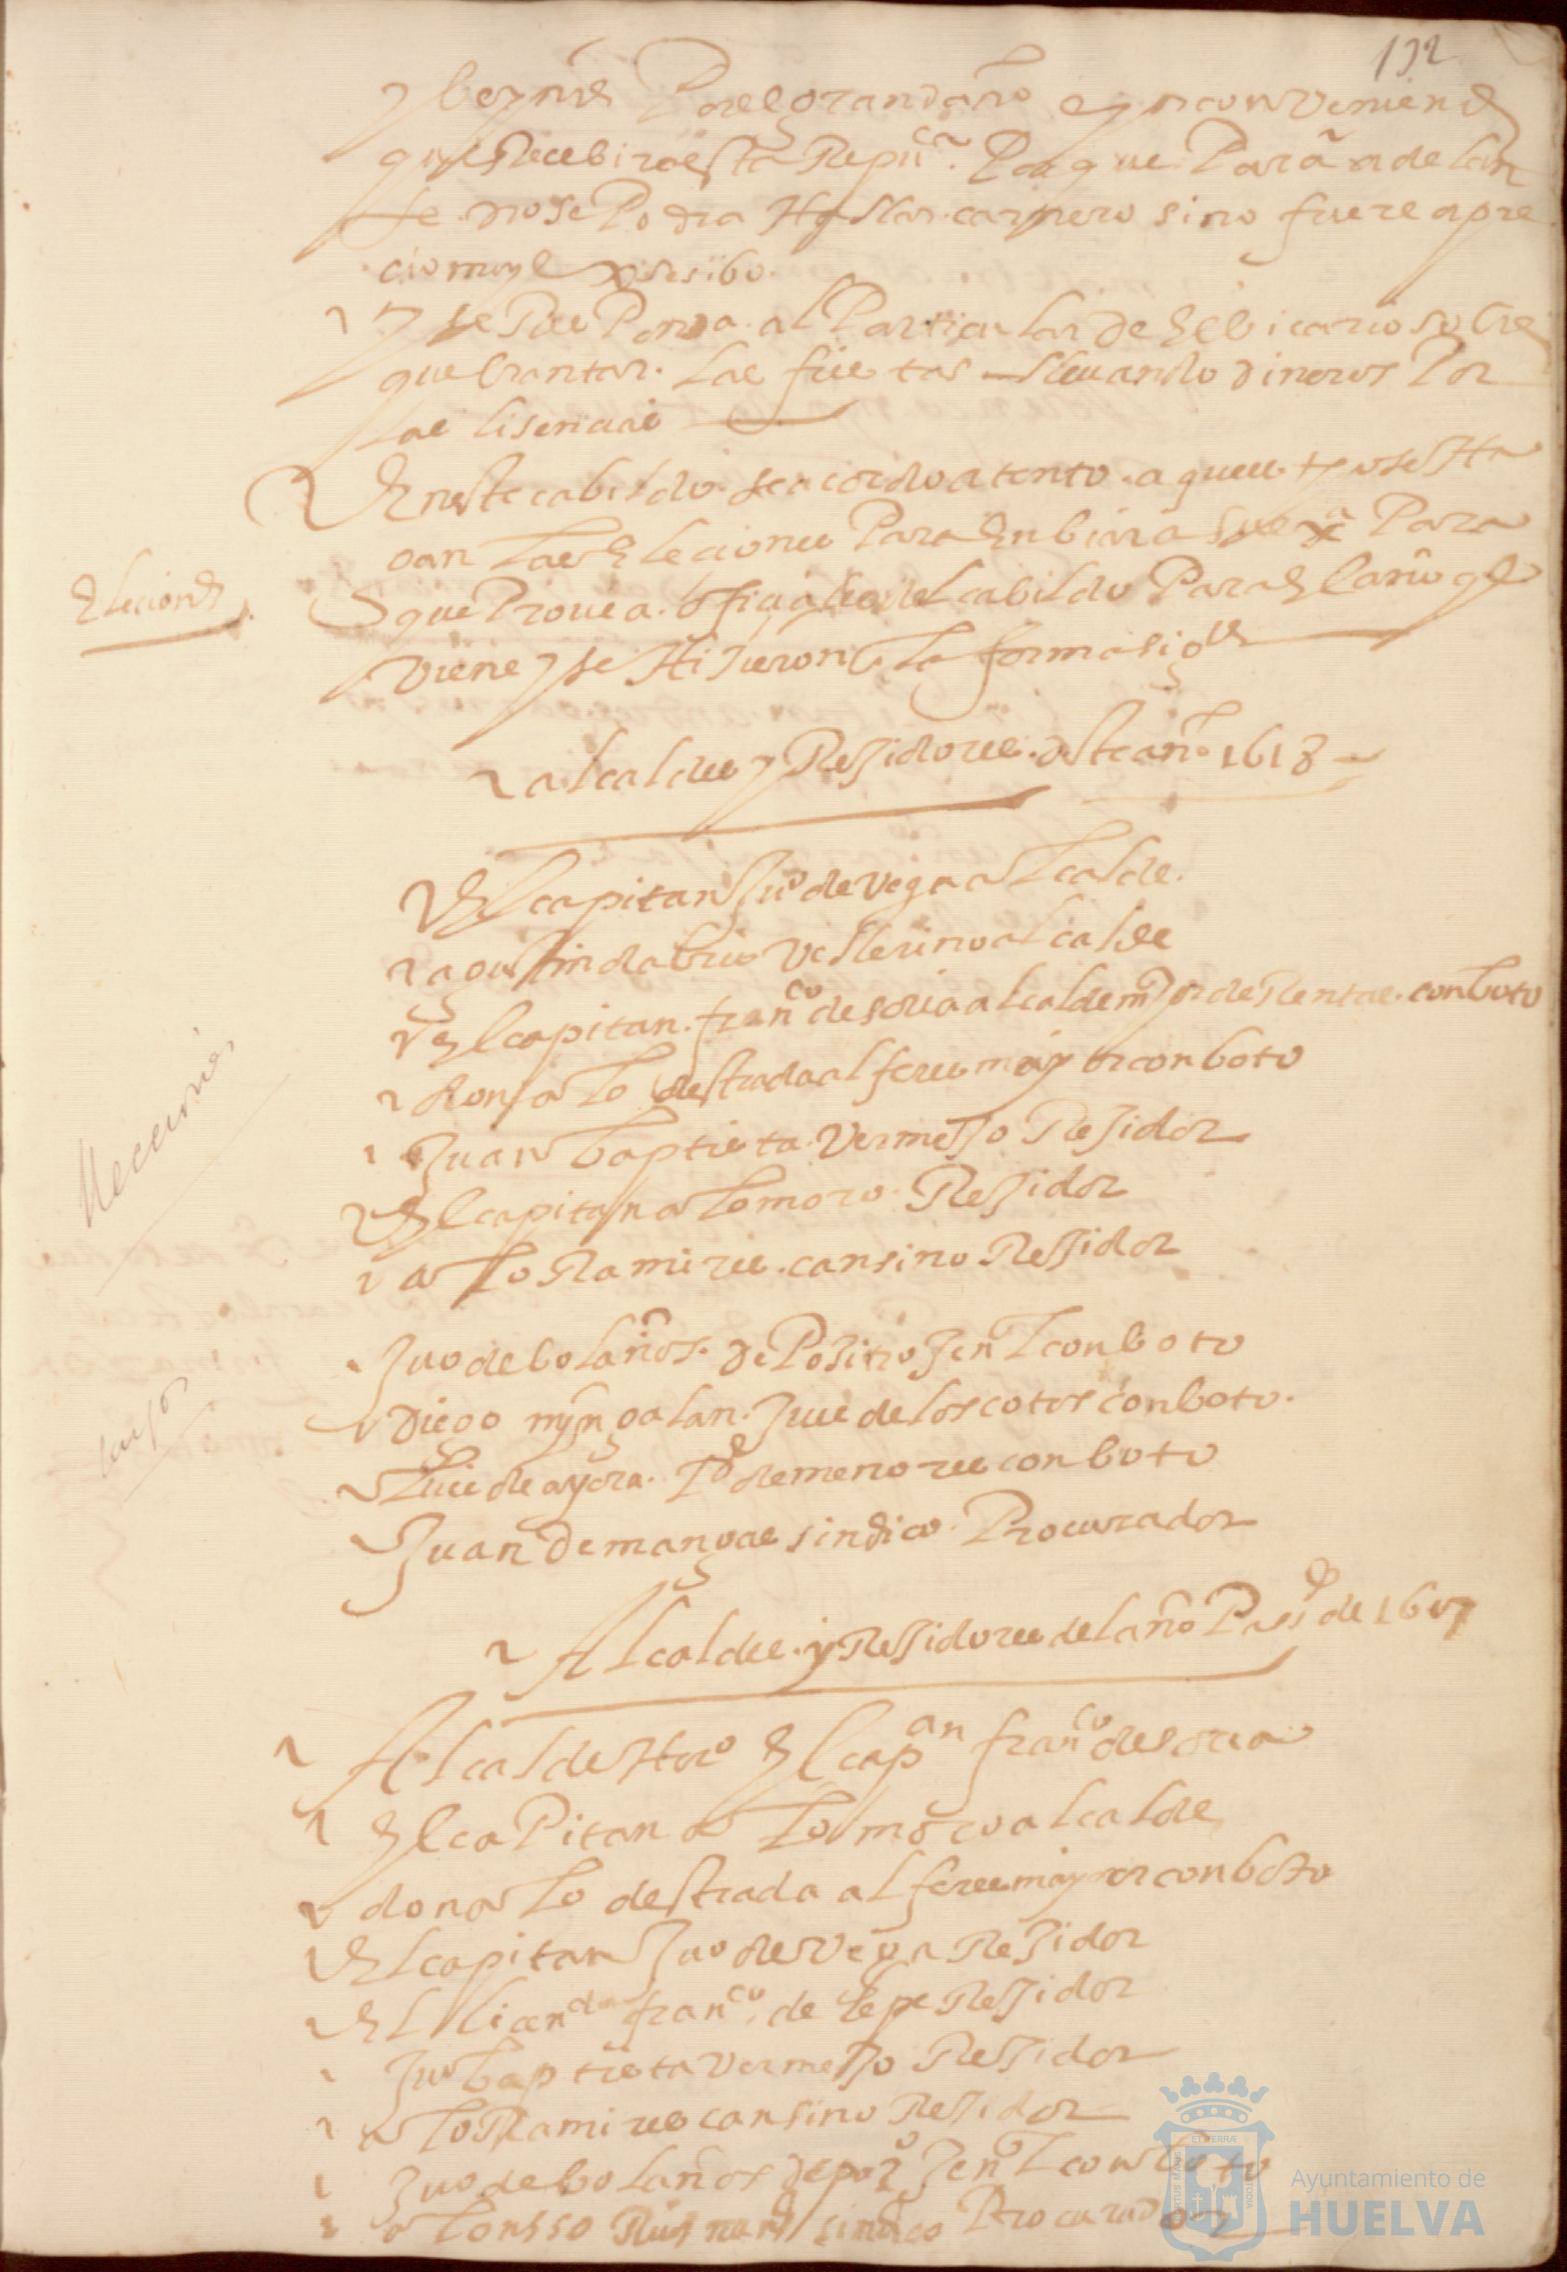 132
Por el gran daño e ynconvenient
que Recebira esta Repuca. Porque Para adelan
te no se Podra Hallar carnero sino fuere a pre
cio muy exsesibo.
y se Ponga al Particular de El bicario sobre
quebrantar. las fiestas llevando dineros Por
las lisencias
En este cabildo se acordo atento a que
gan las Eleciones Para Enbiar a su exa Para
que Provea ofiçiales del cabildo Para El año q
viene y se Hisieron En la forma sigte
Eleciones
alcaldes y Rejidores deste año 1618
El capitan Juo de Vega alcalde.
agustin dalbis Vellerino alcalde
El capitan franco de soria alcalde mor de Rentas con boto
don alo destrada alferes mayor con boto
Juan baptista Vermejo Rejidor
El capitan alo moro Rejidor
alo Ramires cansino Rejidor
Juo de bolaños. de Posito Jenl con boto
Diego mrn galan. Jues de los cotos con boto.
Luis de ayora. Pe de menores con boto
Juan De mangas sindico Procurador
Elecciones
Alcaldes y Rejidores del año Pasdo de 1617
Alcalde Horo El capan franco de soria
El caPitan alo moro alcalde
don alo destrada alferes mayor con boto
El capitan Juo de Vega Rejidor
El licendo franco de lepe Rejidor
Juo baptista Vermejo Rejidor
alo Ramires cansino Rejidor
Juo de bolaños depoo Jenl con boto
alonsso sindico Procurador
Ayuntamiento de
HUELVA